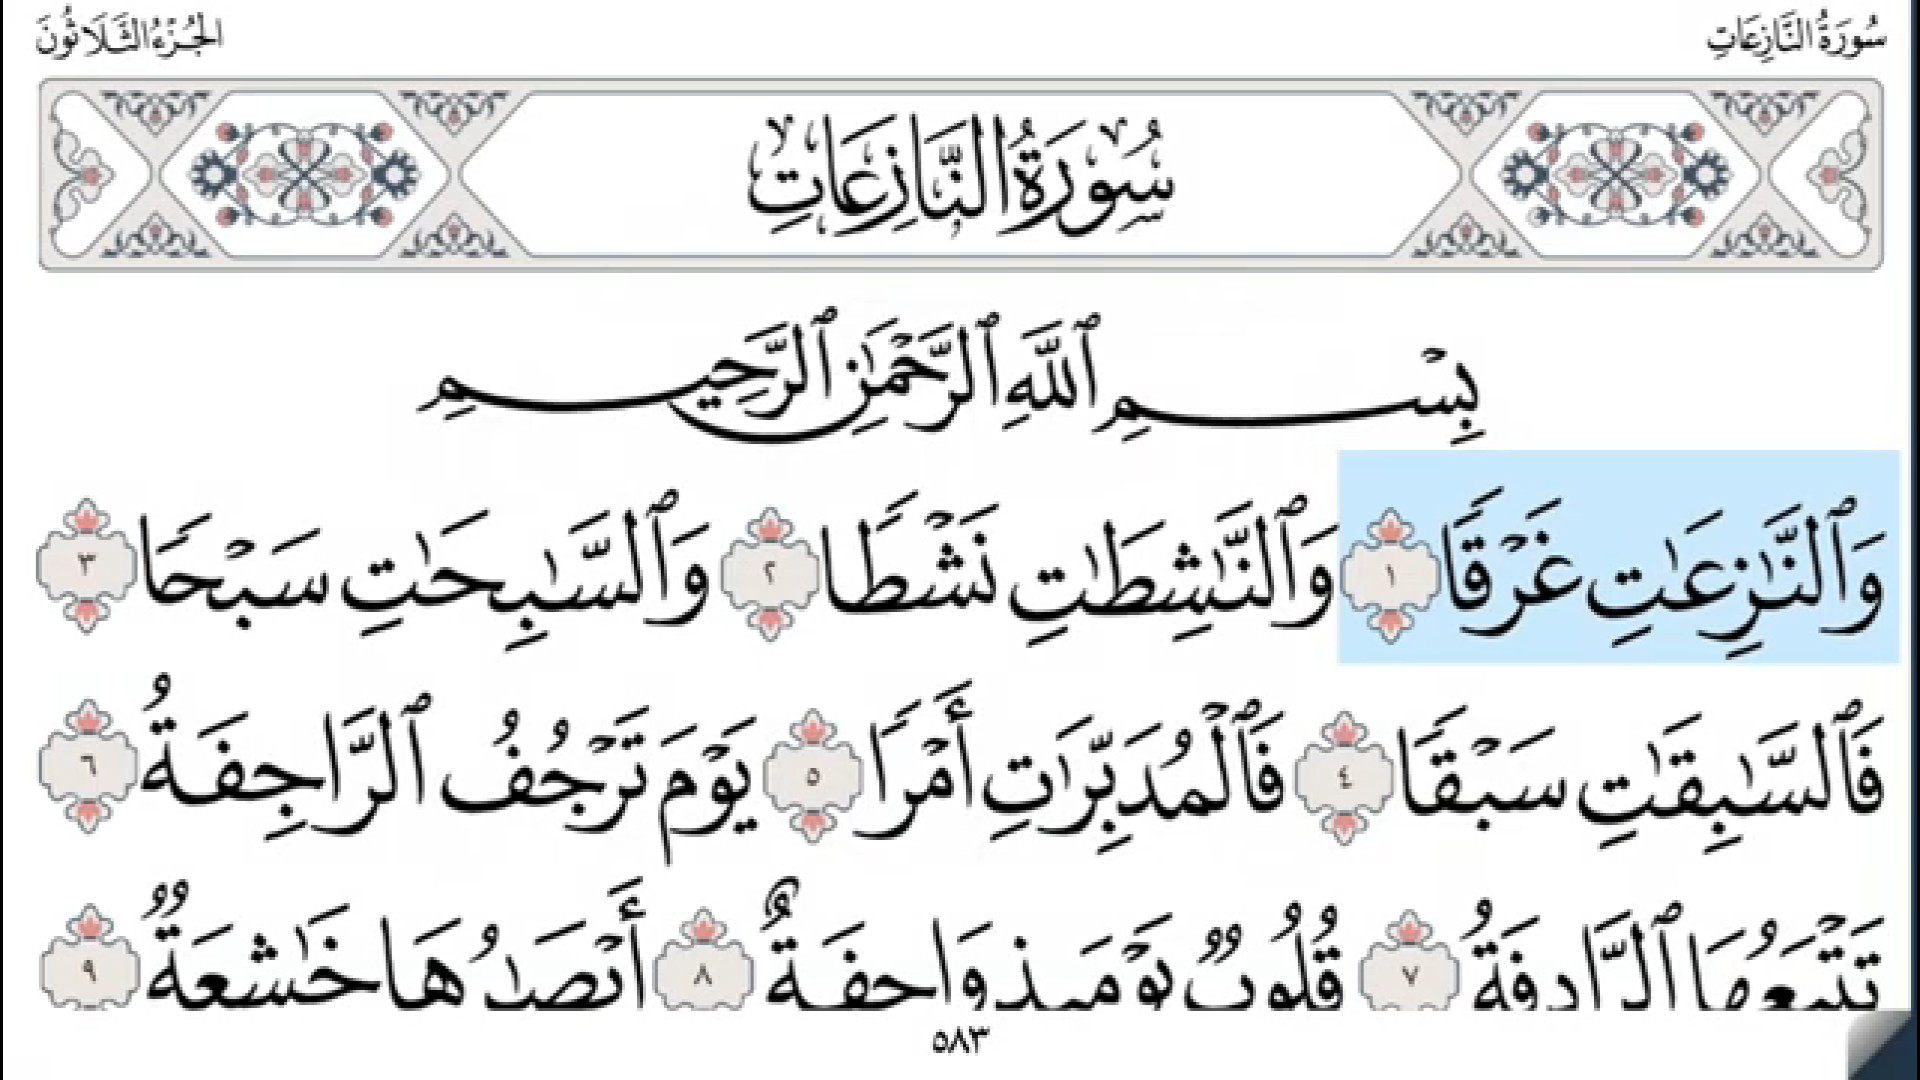 سُورَةُ النَّازِعَاتِ الجُزْءُ الثَّلَاثُونَ
سُورَةُ النَّازِعَاتِ
بِسْمِ ٱللَّهِ ٱلرَّحْمَٰنِ ٱلرَّحِيمِ
وَٱلنَّٰزِعَٰتِ غَرْقًا ١ وَٱلنَّٰشِطَٰتِ نَشْطًا ٢ وَٱلسَّٰبِحَٰتِ سَبْحًا ٣
فَٱلسَّٰبِقَٰتِ سَبْقًا ٤ فَٱلْمُدَبِّرَٰتِ أَمْرًا ٥ يَوْمَ تَرْجُفُ ٱلرَّاجِفَةُ ٦
تَتْبَعُهَا ٱلرَّادِفَةُ ٧ قُلُوبٌ يَوْمَئِذٍ وَاجِفَةٌ ٨ أَبْصَٰرُهَا خَٰشِعَةٌ ٩
٥٨٣